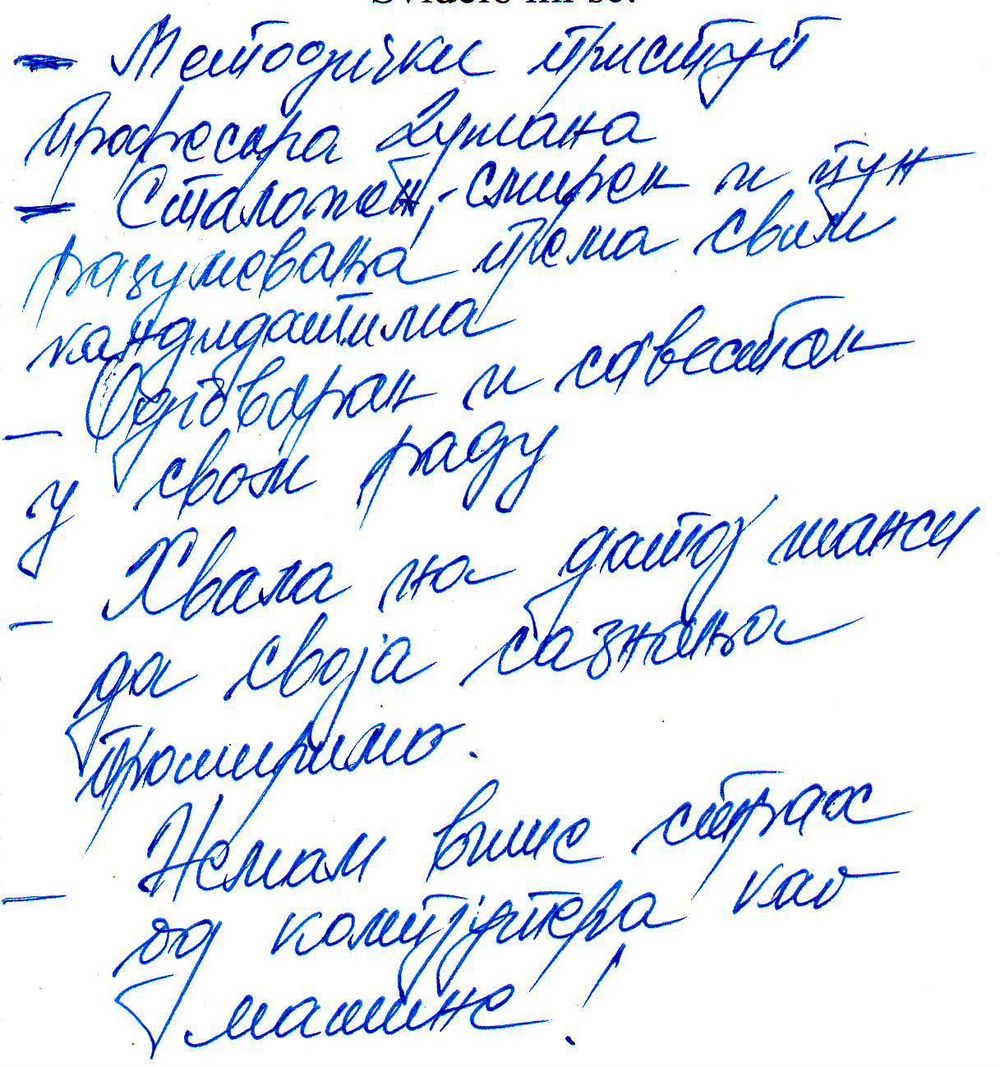 Svidelo mi se:
- Методички приступ
професора Душана
- Сталожен, смирен и пун
разумевања према свим
кандидатима
- Одговоран и савестан
у свом раду
- Хвала на датој шанси
да своја сазнања
проширимо.
- Немам више страх
од компјутера као
машине!